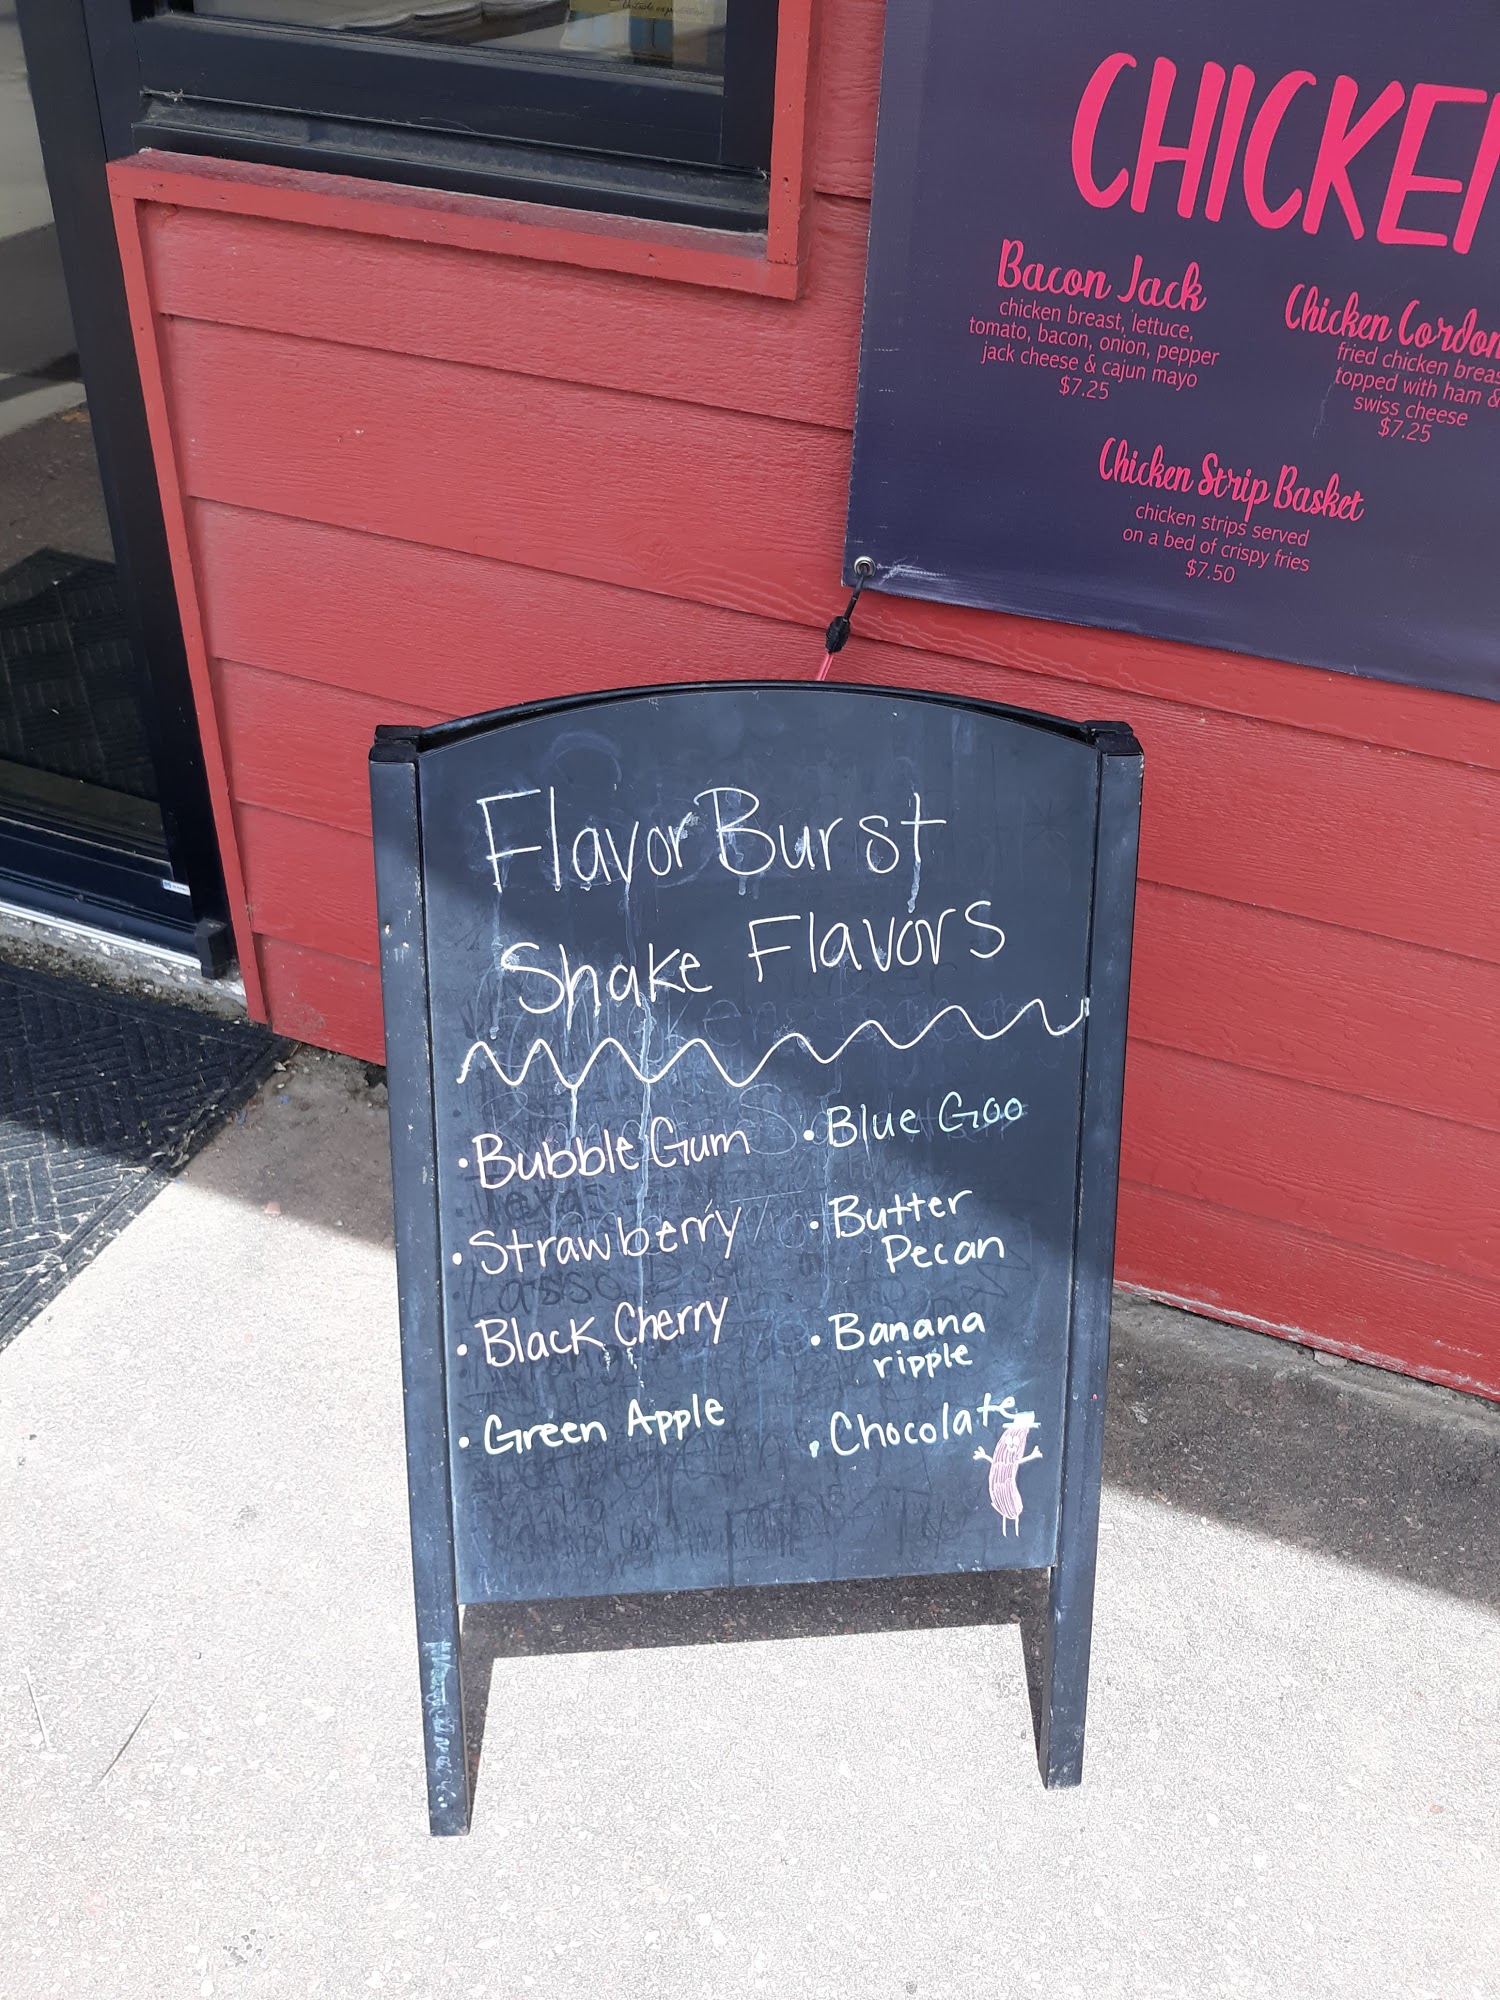 CHICKE
Bacon Jack
chicken breast, lettuce,
tomato, bacon, onion, pepper
jack cheese & cajun mayo
$7.25
Chicken Cordon
fried chicken breas
topped with ham &
swiss cheese
$7.25
Chicken Strip Basket
chicken strips served
on a bed of crispy fries
$7.50
Flavor Burst
Shake Flavors
• Bubble Gum
• Strawberry
• Black Cherry
• Green Apple
• Blue Goo
• Butter
Pecan
• Banana
ripple
• Chocolate